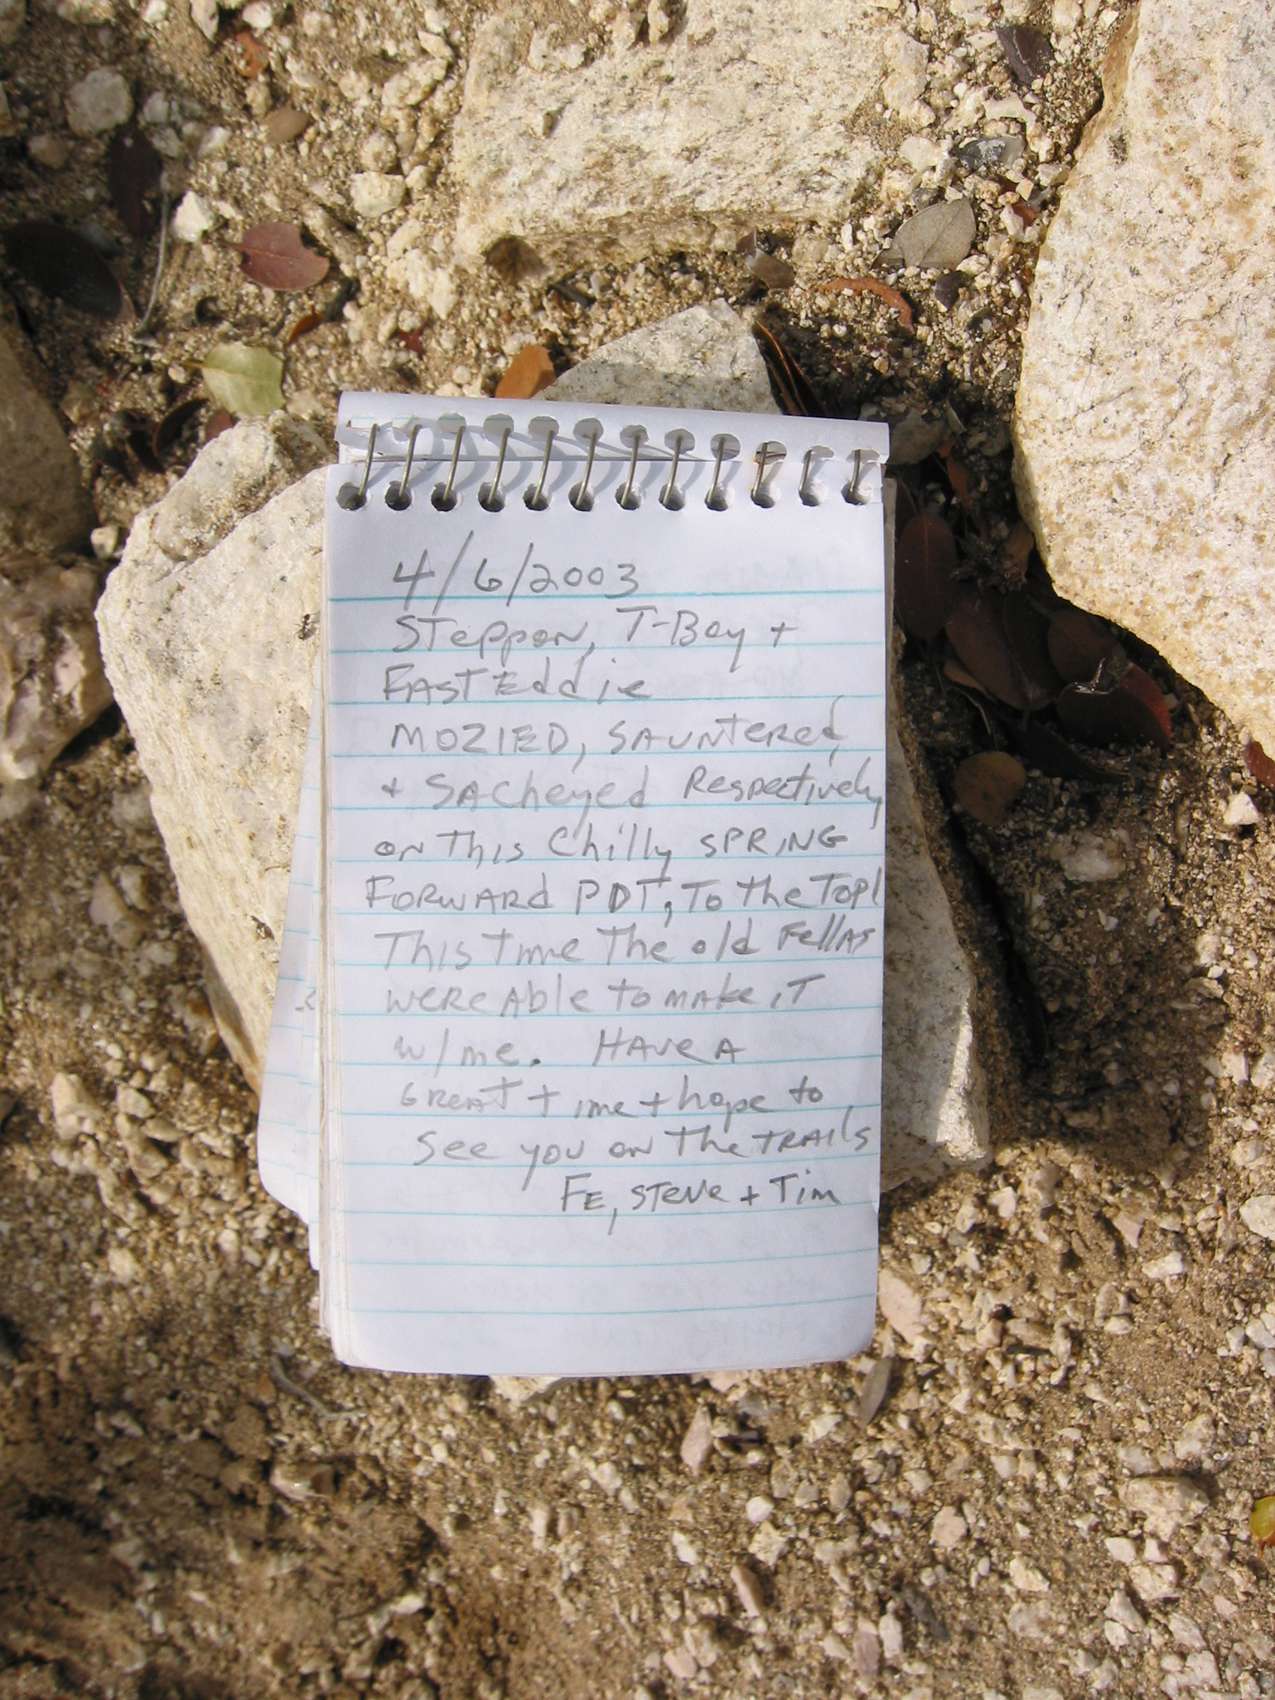 4/6/2003
Steppon, T-Boy +
FAST Eddie
MOZIED, SAuntered,
+ SACheyed Respectively
on This Chilly SPRING
FORWARd PDT, To the Top!
This time The old FellAs
were Able to make iT
w/me. HAve A
GreAT time + hope to
See you on The TRAils
FE, STeve + Tim